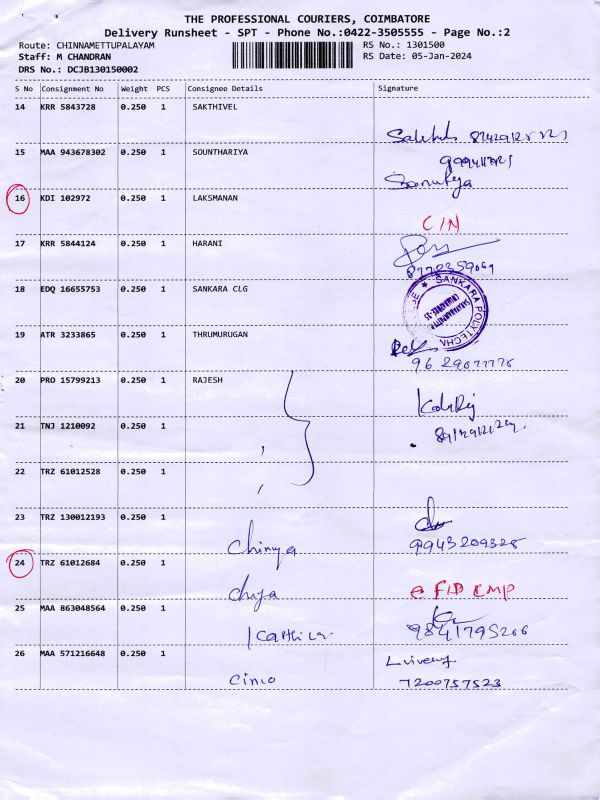 THE PROFESSIONAL COURIERS, COIMBATORE
Delivery Runsheet - SPT - Phone No.:0422-3505555 - Page No.:2
Route: CHINNAMETTUPALAYAM RS No.: 1301500
Staff: M CHANDRAN RS Date: 05-Jan-2024
DRS No.: DCJB130150002
S No Consignment No Weight PCS Consignee Details Signature
14 KRR 5843728 0.250 1 SAKTHIVEL
15 MAA 943678302 0.250 1 SOUNTHARIYA
16 KDI 102972 0.250 1 LAKSMANAN
C/N
17 KRR 5844124 0.250 1 HARANI
18 EDQ 16655753 0.250 1 SANKARA CLG
SANKARA POLYTECH
19 ATR 3233865 0.250 1 THRUMURUGAN
20 PRO 15799213 0.250 1 RAJESH
21 TNJ 1210092 0.250 1
22 TRZ 61012528 0.250 1
23 TRZ 130012193 0.250 1
Chinya 9943209328
24 TRZ 61012684 0.250 1
25 MAA 863048564 0.250 1
9841795266
26 MAA 571216648 0.250 1
7200757523